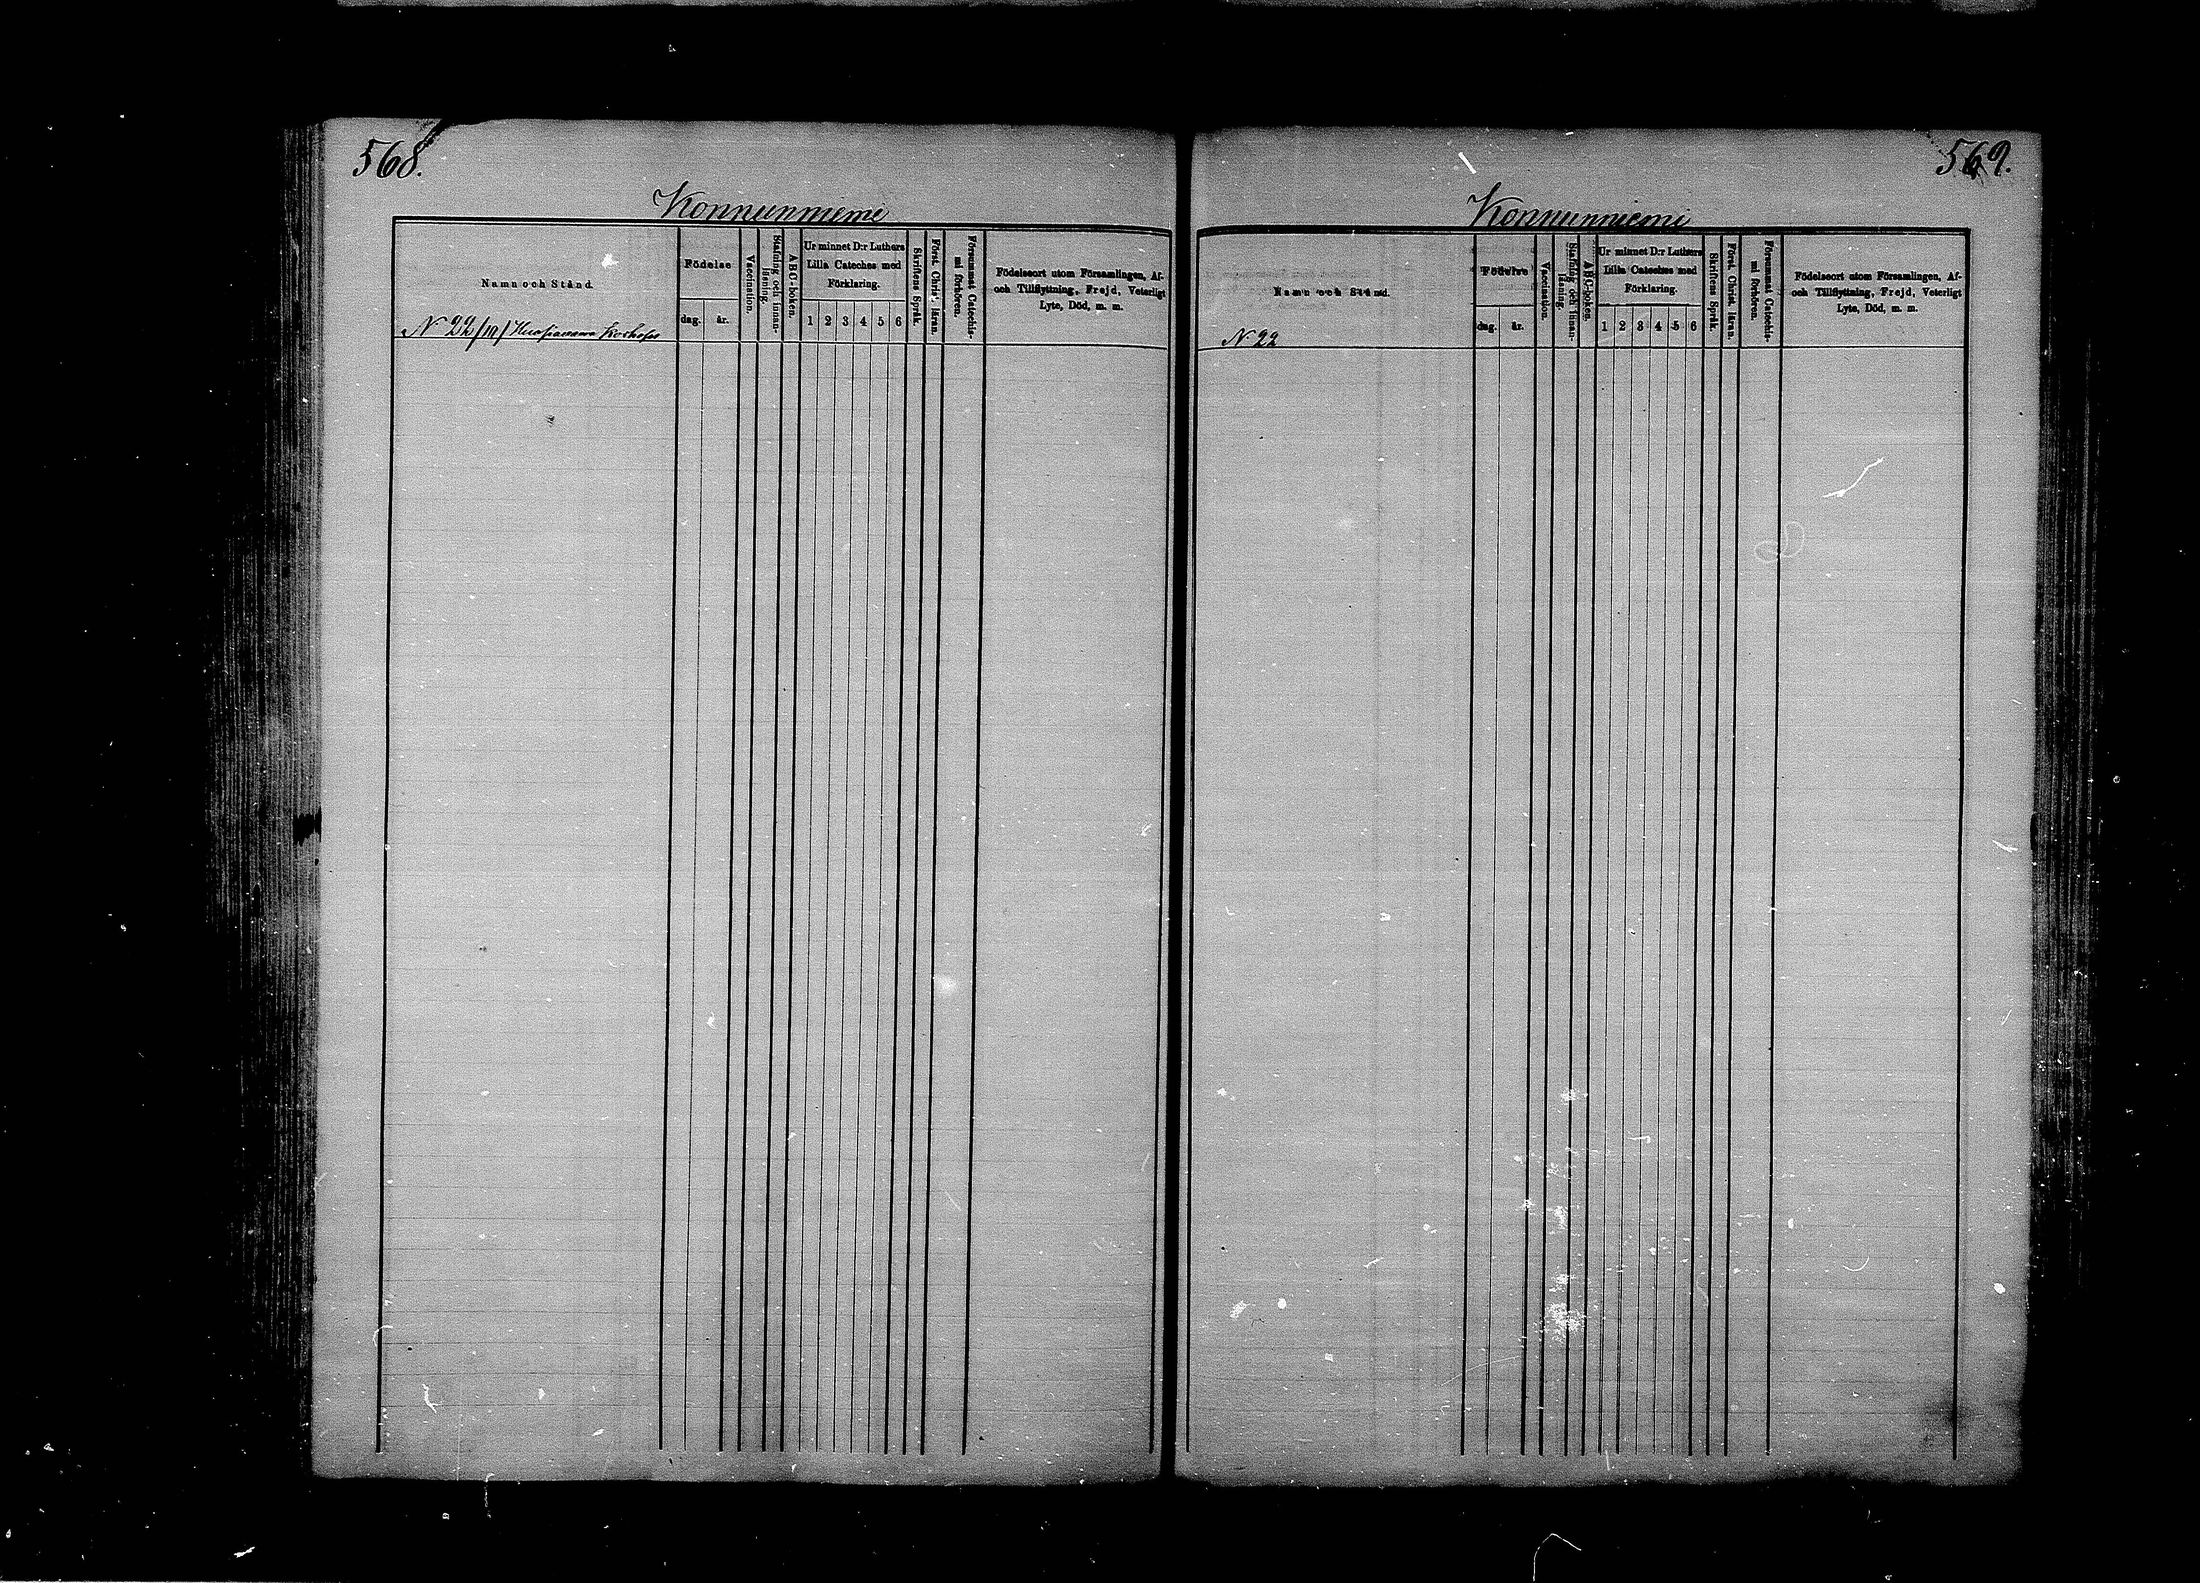 568.
Konnunniemi
Namn och Stånd.
Födelse
dag.
år.
Vaccination.
Stafning och innan-
läsning.
ABC-boken.
Ur minnet D:r Luthers
Lilla Cateches med
Förklaring.
1 2 3 4 5 6
Skriftens Språk.
Först. Christ. läran.
Försummat Catechis-
mi förhören.
Födelseort utom Församlingen, Af-
och Tillflyttning, Frejd, Veterligt
Lyte, Död, m. m.
N 22
569.
Konnunniemi
Namn och Stånd.
Födelse
dag.
år.
Vaccination.
Stafning och innan-
läsning.
ABC-boken.
Ur minnet D:r Luthers
Lilla Cateches med
Förklaring.
1 2 3 4 5 6
Skriftens Språk.
Först. Christ. läran.
Försummat Catechis-
mi förhören.
Födelseort utom Församlingen, Af-
och Tillflyttning, Frejd, Veterligt
Lyte, Död, m. m.
N. 22